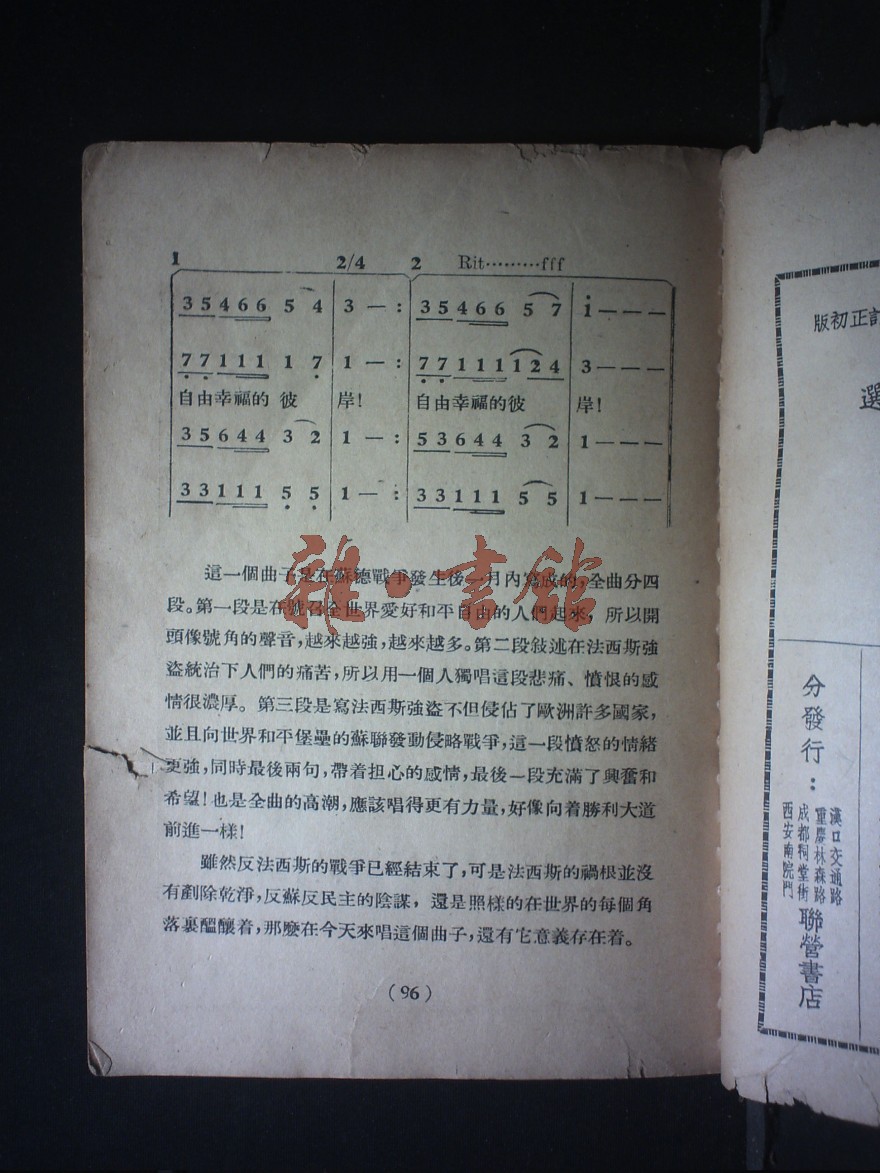 1 2/4 2 Rit………fff
3 5 4 6 6 5 4 3 — : 3 5 4 6 6 5 7 1 — — —
7 7 1 1 1 1 7 1 — : 7 7 1 1 1 1 2 4 3 — — —
自由幸福的彼 岸! 自由幸福的彼 岸!
3 5 6 4 4 3 2 1 — : 5 3 6 4 4 3 2 1 — — —
3 3 1 1 1 5 5 1 — : 3 3 1 1 1 5 5 1 — — —
這一個曲子是在蘇德戰爭發生後一月內寫成的,全曲分四
段。第一段是在號召全世界愛好和平自由的人們起來,所以開
頭像號角的聲音,越來越強,越來越多。第二段敍述在法西斯強
盜統治下人們的痛苦,所以用一個人獨唱這段悲痛、憤恨的感
情很濃厚。第三段是寫法西斯強盜不但侵佔了歐洲許多國家,
並且向世界和平堡壘的蘇聯發動侵略戰爭,這一段憤怒的情緒
更強,同時最後兩句,帶着担心的感情,最後一段充滿了興奮和
希望!也是全曲的高潮,應該唱得更有力量,好像向着勝利大道
前進一樣!
雖然反法西斯的戰爭已經結束了,可是法西斯的禍根並沒
有剷除乾淨,反蘇反民主的陰謀,還是照樣的在世界的每個角
落裏醞釀着,那麼在今天來唱這個曲子,還有它意義存在着。
(96)
雜·書館
訂正初版
選
分發行:
漢口交通路
重慶林森路
成都祠堂街
西安南院門
聯營書店